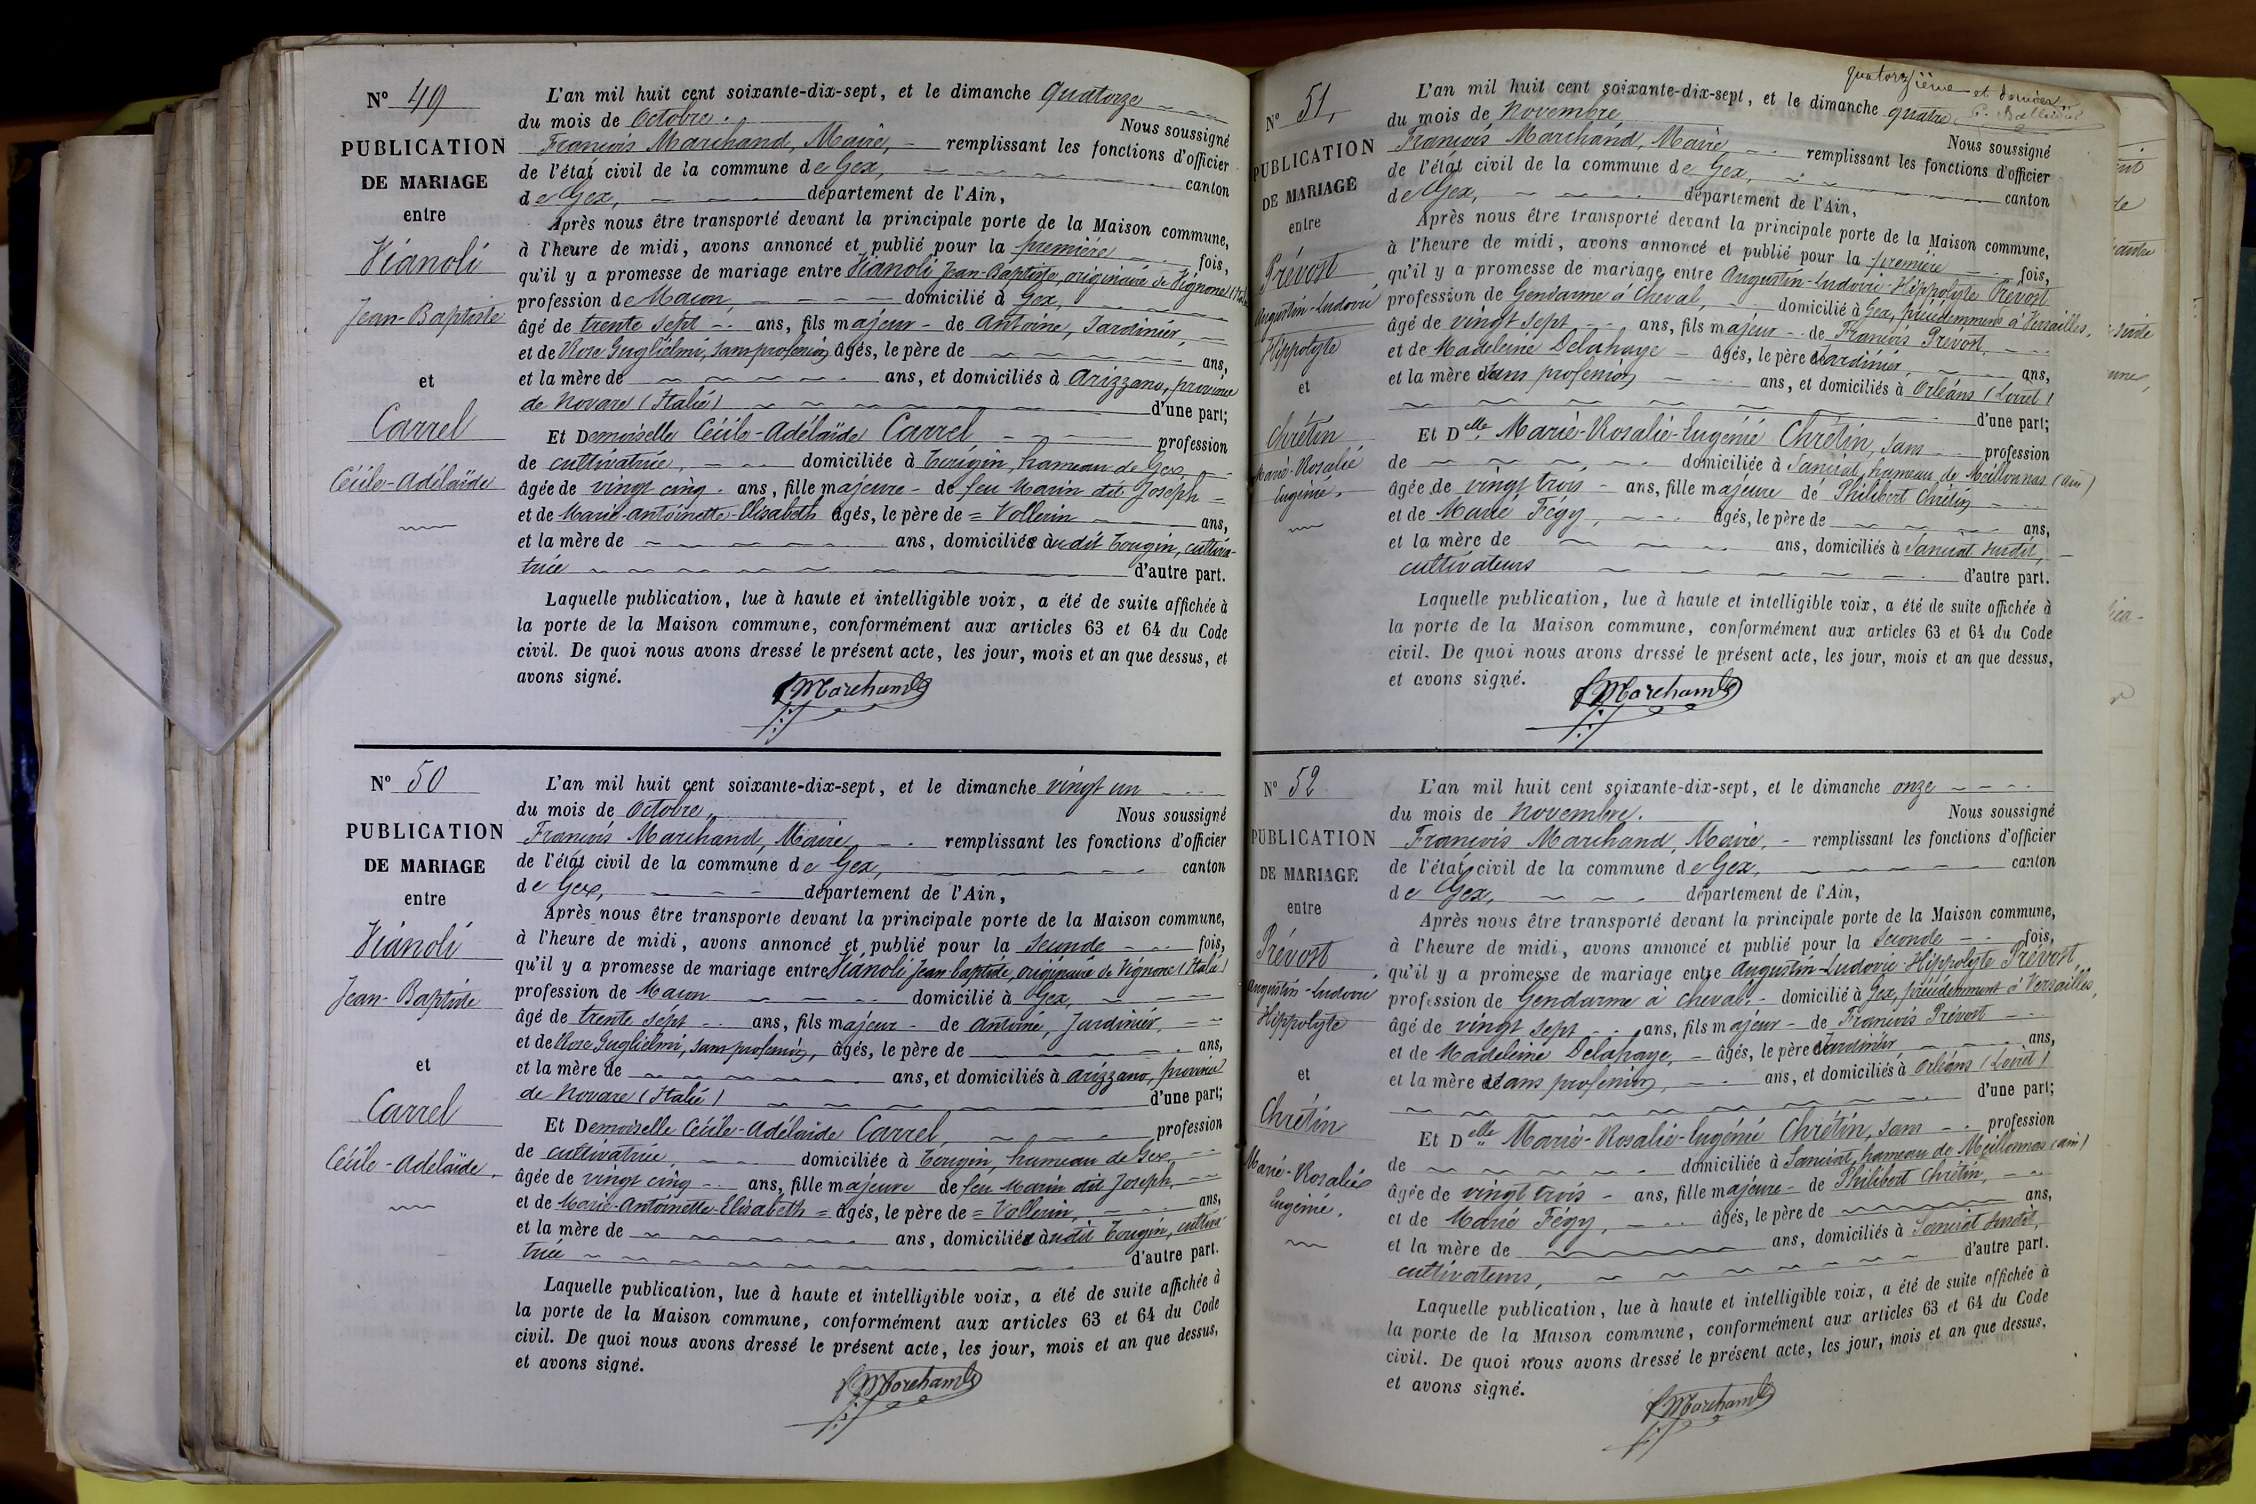 N° 49
PUBLICATION
DE MARIAGE
entre
Vianoli
Jean-Baptiste
et
Carrel
Cécile-Adélaïde
L'an mil huit cent soixante-dix-sept, et le dimanche quatorze
du mois de Octobre. Nous soussigné
François Marchand, Maire, remplissant les fonctions d'officier
de l'état civil de la commune de Gex, canton
de Gex, département de l'Ain,
Après nous être transporté devant la principale porte de la Maison commune,
à l'heure de midi, avons annoncé et publié pour la première fois,
qu'il y a promesse de mariage entre Vianoli Jean-Baptiste, originaire de Vignone (Italie)
profession de Maçon, domicilié à Gex,
âgé de trente sept ans, fils majeur de Antoine, Jardinier,
et de Rose Guglielmi, sans profession, âgés, le père de ans,
et la mère de ans, et domiciliés à Arizzano, province
de Novare (Italie) d'une part;
Et Demoiselle Cécile-Adélaïde Carrel, profession
de cultivatrice, domiciliée à Tougin, hameau de Gex,
âgée de vingt cinq ans, fille majeure de feu Marin dit Joseph =
et de Marie-Antoinette-Elisabeth âgés, le père de = Vollerin ans,
et la mère de ans, domiciliée audit Tougin, cultiva-
trice d'autre part.
Laquelle publication, lue à haute et intelligible voix, a été de suite affichée à
la porte de la Maison commune, conformément aux articles 63 et 64 du Code
civil. De quoi nous avons dressé le présent acte, les jour, mois et an que dessus, et
avons signé.
f Marchand
N° 50
PUBLICATION
DE MARIAGE
entre
Vianoli
Jean-Baptiste
et
Carrel
Cécile-Adélaïde
L'an mil huit cent soixante-dix-sept, et le dimanche vingt un
du mois de Octobre, Nous soussigné
François Marchand, Maire, remplissant les fonctions d'officier
de l'état civil de la commune de Gex, canton
de Gex, département de l'Ain,
Après nous être transporté devant la principale porte de la Maison commune,
à l'heure de midi, avons annoncé et publié pour la seconde fois,
qu'il y a promesse de mariage entre Vianoli Jean-baptiste, originaire de Vignone (Italie)
profession de Maçon domicilié à Gex,
âgé de trente sept ans, fils majeur de Antoine, Jardinier,
et de Rose Guglielmi, sans profession, âgés, le père de ans,
et la mère de ans, et domiciliés à Arizzano, province
de Novare (Italie) d'une part;
Et Demoiselle Cécile-Adélaïde Carrel, profession
de cultivatrice, domiciliée à Tougin, hameau de Gex,
âgée de vingt cinq ans, fille majeure de feu Marin dit Joseph,
et de Marie-Antoinette-Elisabeth = âgés, le père de = Vollerin, ans,
et la mère de ans, domiciliée audit Tougin, cultiva-
trice d'autre part.
Laquelle publication, lue à haute et intelligible voix, a été de suite affichée à
la porte de la Maison commune, conformément aux articles 63 et 64 du Code
civil. De quoi nous avons dressé le présent acte, les jour, mois et an que dessus,
et avons signé.
f Marchand
quatorzième et dernier
N° 51,
PUBLICATION
DE MARIAGE
entre
Prévost
Augustin-Ludovic
Hippolyte
et
Chrétin
Marie-Rosalie
Eugénie.
L'an mil huit cent soixante-dix-sept, et le dimanche quatre
du mois de Novembre Nous soussigné
François Marchand, Maire remplissant les fonctions d'officier
de l'état civil de la commune de Gex, canton
de Gex, département de l'Ain,
Après nous être transporté devant la principale porte de la Maison commune,
à l'heure de midi, avons annoncé et publié pour la première fois,
qu'il y a promesse de mariage entre Augustin-Ludovic-Hippolyte Prévost
profession de Gendarme à Cheval, domicilié à Gex, précédemment à Versailles,
âgé de vingt sept ans, fils majeur de François Prévost,
et de Madeleine Delahaye âgés, le père Jardinier, ans,
et la mère sans profession ans, et domiciliés à Orléans (Loiret)
d'une part;
Et Delle Marie-Rosalie-Eugénie Chrétin, sans profession
de domiciliée à Sanciat, hameau de Meillonnas (Ain)
âgée de vingt trois ans, fille majeure de Philibert Chrétin
et de Marie Fégy, âgés, le père de ans,
et la mère de ans, domiciliés à Sanciat susdit,
cultivateurs d'autre part.
Laquelle publication, lue à haute et intelligible voix, a été de suite affichée à
la porte de la Maison commune, conformément aux articles 63 et 64 du Code
civil. De quoi nous avons dressé le présent acte, les jour, mois et an que dessus,
et avons signé.
f Marchand
N° 52
PUBLICATION
DE MARIAGE
entre
Prévost
Augustin-Ludovic
Hippolyte
et
Chrétin
Marie-Rosalie
Eugénie.
L'an mil huit cent soixante-dix-sept, et le dimanche onze
du mois de Novembre. Nous soussigné
François Marchand, Maire, remplissant les fonctions d'officier
de l'état civil de la commune de Gex, canton
de Gex, département de l'Ain,
Après nous être transporté devant la principale porte de la Maison commune,
à l'heure de midi, avons annoncé et publié pour la seconde fois,
qu'il y a promesse de mariage entre Augustin-Ludovic-Hippolyte Prévost
profession de Gendarme à cheval domicilié à Gex, précédemment à Versailles,
âgé de vingt sept ans, fils majeur de François Prévost
et de Madeleine Delahaye, âgés, le père Jardinier ans,
et la mère sans profession, ans, et domiciliés à Orléans (Loiret)
d'une part;
Et Delle Marie-Rosalie-Eugénie Chrétin, sans profession
de domiciliée à Sanciat, hameau de Meillonnas (Ain)
âgée de vingt trois ans, fille majeure de Philibert Chrétin,
et de Marie Fégy, âgés, le père de ans,
et la mère de ans, domiciliés à Sanciat susdit,
cultivateurs, d'autre part.
Laquelle publication, lue à haute et intelligible voix, a été de suite affichée à
la porte de la Maison commune, conformément aux articles 63 et 64 du Code
civil. De quoi nous avons dressé le présent acte, les jour, mois et an que dessus,
et avons signé.
f Marchand